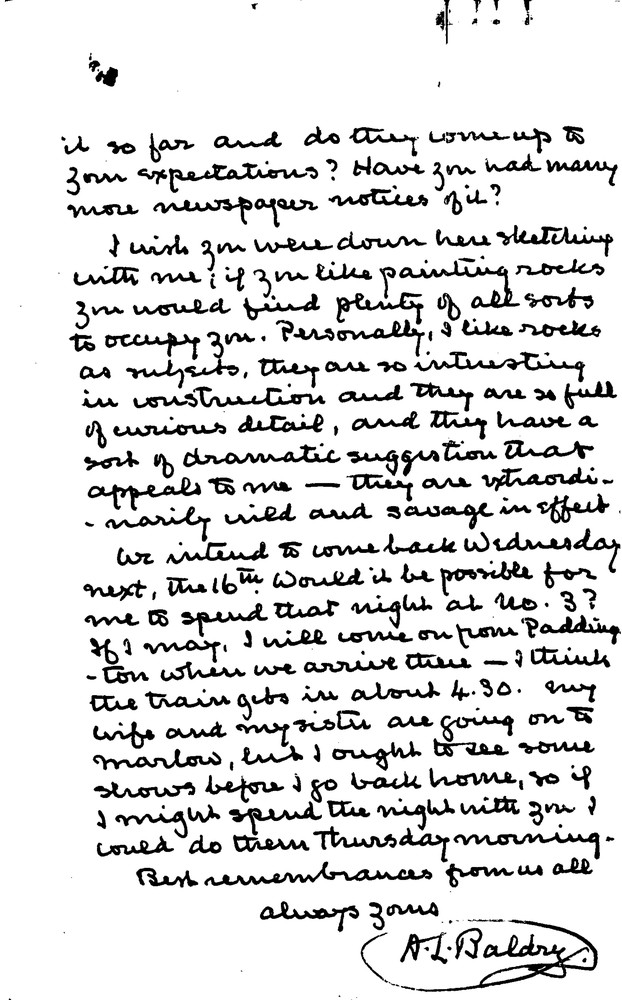 it so far and do they come up to
your expectations? Have you had many
more newspaper notices of it?
I wish you were down here sketching
with me; if you like painting rocks
you would find plenty of all sorts
to occupy you. Personally, I like rocks
as subjects, they are so interesting
in construction and they are so full
of curious detail, and they have a
sort of dramatic suggestion that
appeals to me — they are extraordi-
-narily wild and savage in effect.
We intend to come back Wednesday
next, the 16th. Would it be possible for
me to spend that night at No. 3?
If I may, I will come on from Padding
-ton when we arrive there — I think
the train gets in about 4.30. My
wife and my sister are going on to
Marlow, but I ought to see some
shows before I go back home, so if
I might spend the night with you I
could do them Thursday morning.
Best remembrances from us all
always yours
A.L. Baldry.